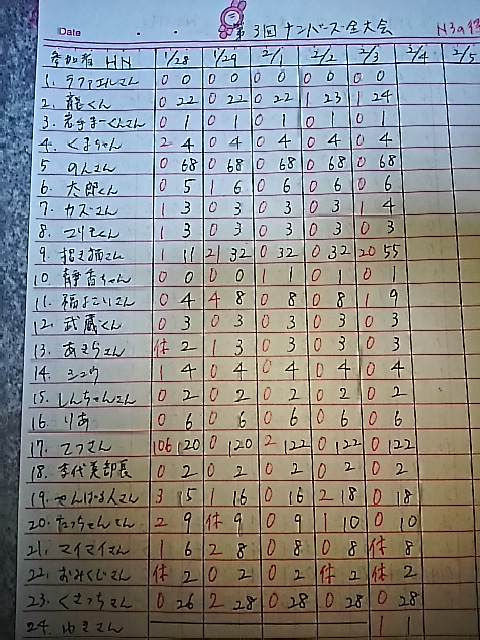 Date ・ ・ 第3回ナンバーズ全大会 N3a
参加者 HN 1/28 1/29 2/1 2/2 2/3 2/4 2/5
1. ラファエルさん 0 0 0 0 0 0 0 0 0 0
2. 龍くん 0 22 0 22 0 22 1 23 1 24
3. 岩手まーくんさん 0 1 0 1 0 1 0 1 0 1
4. くまちゃん 2 4 0 4 0 4 0 4 0 4
5 のんさん 0 68 0 68 0 68 0 68 0 68
6. 太郎くん 0 5 1 6 0 6 0 6 0 6
7. カズさん 1 3 0 3 0 3 0 3 1 4
8. くん 1 3 0 3 0 3 0 3 0 3
9. 招き猫さん 1 11 21 32 0 32 0 32 20 55
10. 静香ちゃん 0 0 0 0 1 1 0 1 0 1
11. 福よこいさん 0 4 4 8 0 8 0 8 1 9
12. 武蔵くん 0 3 0 3 0 3 0 3 0 3
13. さん 休 2 1 3 0 3 0 3 0 3
14. シュウ 1 4 0 4 0 4 0 4 0 4
15. しんちゃんさん 0 2 0 2 0 2 0 2 0 2
16. りあ 0 6 0 6 0 6 0 6 0 6
17. てつさん 106 120 0 120 2 122 0 122 0 122
18. 李代美部長 0 2 0 2 0 2 0 2 0 2
19. せんはまんさん 3 15 1 16 0 16 2 18 0 18
20. たっちゃんさん 2 9 休 9 0 9 1 10 0 10
21. マイマイさん 1 6 2 8 0 8 0 8 休 8
22. おみくじさん 休 2 0 2 0 2 休 2 休 2
23. くさっちさん 0 26 2 28 0 28 0 28 0 28
24. ゆきさん 1 1